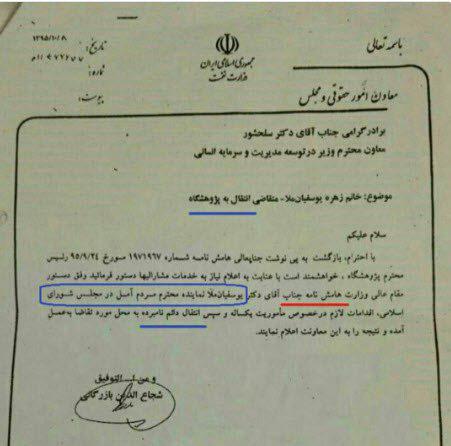 باسمه تعالی
جمهوری اسلامی ایران
وزارت نفت
تاریخ: ۱۳۹۵/۱۰/۸
شماره:
پیوست:
معاون امور حقوقی و مجلس
برادر گرامی جناب آقای دکتر سلحشور
معاون محترم وزیر در توسعه مدیریت و سرمایه انسانی
موضوع: خانم زهره یوسفیان‌ملا - متقاضی انتقال به پژوهشگاه
سلام علیکم
با احترام، بازگشت به پی نوشت جنابعالی هامش نامه شماره ۱۹۷۱۹۶۷ مورخ ۹۵/۹/۲۴ رئیس
محترم پژوهشگاه ، خواهشمند است با عنایت به اعلام نیاز به خدمات مشارالیها دستور فرمائید وفق دستور
مقام عالی وزارت هامش نامه جناب آقای دکتر یوسفیان‌ملا نماینده محترم مردم آمل در مجلس شورای
اسلامی، اقدامات لازم درخصوص مأموریت یکساله و سپس انتقال دائم نامبرده به محل مورد تقاضا به‌عمل
آمده و نتیجه را به این معاونت اعلام نمایند.
و من ا... التوفیق
شجاع الدین بازرگانی